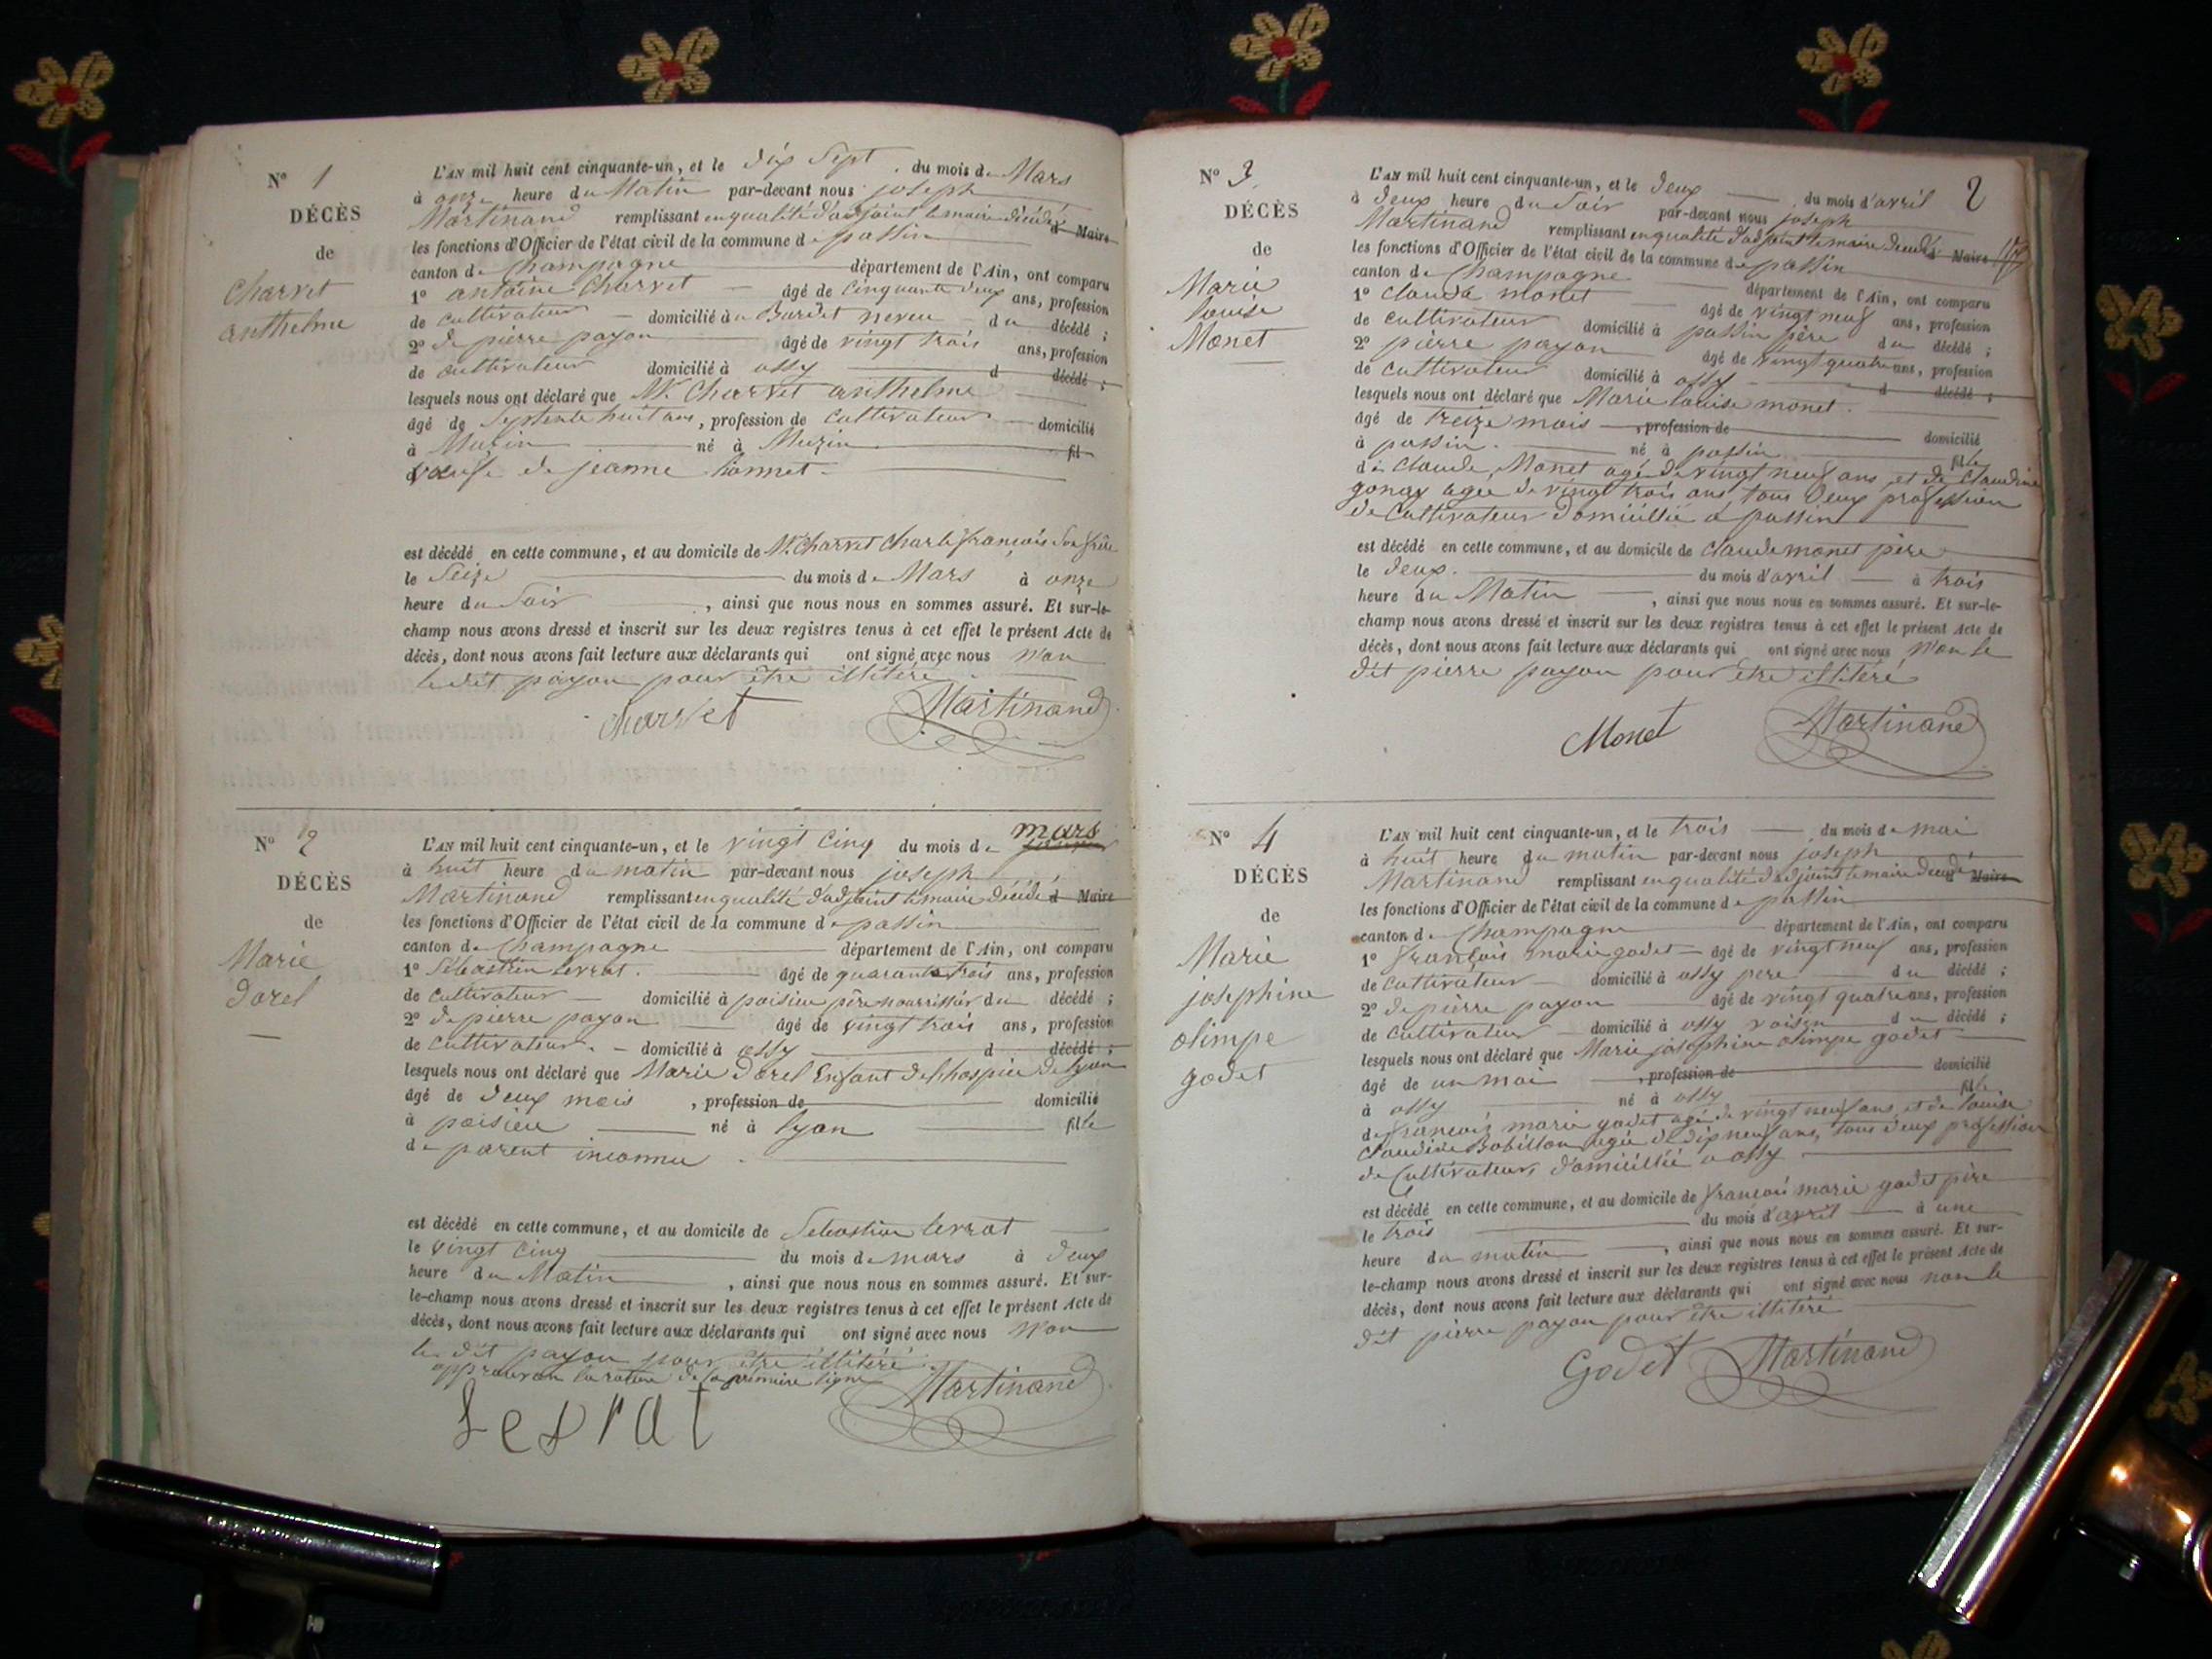 N° 1
DÉCÈS
de
Charvet
anthelme
L'AN mil huit cent cinquante-un, et le dix Sept du mois de Mars
à onze heure du Matin par-devant nous joseph
Martinand remplissant en qualité d'adjoint le maire décédé d Maire
les fonctions d'Officier de l'état civil de la commune de passin
canton de Champagne département de l'Ain, ont comparu
1° antoine Charvet âgé de Cinquante deux ans, profession
de cultivateur domicilié à neveu du décédé ;
2° de pierre payon âgé de vingt trois ans, profession
de cultivateur domicilié à ossy d décédé ;
lesquels nous ont déclaré que Mr. Charvet anthelme
âgé de Septente huit ans, profession de Cultivateur domicilié
à Muzin né à Muzin fil
de jeanne
est décédé en cette commune, et au domicile de Mr. Charvet Charle françois Son frère
le Seize du mois de Mars à onze
heure du Soir , ainsi que nous nous en sommes assuré. Et sur-le-
champ nous avons dressé et inscrit sur les deux registres tenus à cet effet le présent Acte de
décès, dont nous avons fait lecture aux déclarants qui ont signé avec nous Non
le dit payon pour être illitéré
Charvet Martinand
N° 2
DÉCÈS
de
Marie
Dorel
L'AN mil huit cent cinquante-un, et le vingt Cinq du mois de mars
à huit heure du matin par-devant nous joseph
Martinand remplissant en qualité d'adjoint le maire décédé d Maire
les fonctions d'Officier de l'état civil de la commune de passin
canton de Champagne département de l'Ain, ont comparu
1° Sébastien Levrat. âgé de quarante trois ans, profession
de cultivateur domicilié à poisieu père nourrissier du décédé ;
2° de pierre payon âgé de vingt trois ans, profession
de cultivateur. domicilié à ossy d décédé ;
lesquels nous ont déclaré que Marie Dorel Enfant de lhospice de lyon
âgé de Deux mois , profession de domicilié
à poisieu né à lyon fille
de parent inconnu
est décédé en cette commune, et au domicile de Sebastien Levrat
le vingt Cinq du mois de mars à Deux
heure du Matin , ainsi que nous nous en sommes assuré. Et sur-
le-champ nous avons dressé et inscrit sur les deux registres tenus à cet effet le présent Acte de
décès, dont nous avons fait lecture aux déclarants qui ont signé avec nous Non
le dit payon pour être illitéré
approuvon la rature de la première ligne
Levrat Martinand
2
N° 3
DÉCÈS
de
Marie
louise
Monet
L'AN mil huit cent cinquante-un, et le Deux du mois d'avril
à Deux heure du Soir par-devant nous joseph
Martinand remplissant en qualité d'adjoint le maire décédé d Maire
les fonctions d'Officier de l'état civil de la commune de passin
canton de Champagne département de l'Ain, ont comparu
1° Claude monet âgé de vingt neuf ans, profession
de Cultivateur domicilié à passin père du décédé ;
2° pierre payon âgé de vingt quatre ans, profession
de Cultivateur domicilié à ossy d décédé ;
lesquels nous ont déclaré que Marie louise monet.
âgé de treize mois , profession de domicilié
à passin. né à passin fille
de Claude Monet agé de vingt neuf ans et de Claudine
gonay agée de vingt trois ans tous Deux profession
de Cultivateur Domicillié à passin
est décédé en cette commune, et au domicile de Claude monet père
le Deux. du mois d'avril à trois
heure du Matin , ainsi que nous nous en sommes assuré. Et sur-le-
champ nous avons dressé et inscrit sur les deux registres tenus à cet effet le présent Acte de
décès, dont nous avons fait lecture aux déclarants qui ont signé avec nous Non le
dit pierre payon pour être illitéré
Monet Martinand
N° 4
DÉCÈS
de
Marie
josephine
olimpe
godet
L'AN mil huit cent cinquante-un, et le trois du mois de mai
à huit heure du matin par-devant nous joseph
Martinand remplissant en qualité d'adjoint le maire décédé d Maire
les fonctions d'Officier de l'état civil de la commune de passin
canton de Champagne département de l'Ain, ont comparu
1° françois marie godet âgé de vingt neuf ans, profession
de cultivateur domicilié à ossy pere du décédé ;
2° de pierre payon âgé de vingt quatre ans, profession
de cultivateur domicilié à ossy voisin du décédé ;
lesquels nous ont déclaré que Marie joséphine olimpe godet
âgé de un moi , profession de domicilié
à ossy né à ossy fille
de françois marie godet agé de vingt neuf ans et de louise
Claudine Bobillon agée de dix neuf ans, tous deux profession
de Cultivateurs domicillié a ossy
est décédé en cette commune, et au domicile de françois marie godet père
le trois du mois d'avril à une
heure du matin , ainsi que nous nous en sommes assuré. Et sur-
le-champ nous avons dressé et inscrit sur les deux registres tenus à cet effet le présent Acte de
décès, dont nous avons fait lecture aux déclarants qui ont signé avec nous non le
dit pierre payon pour être illitéré
Godet Martinand